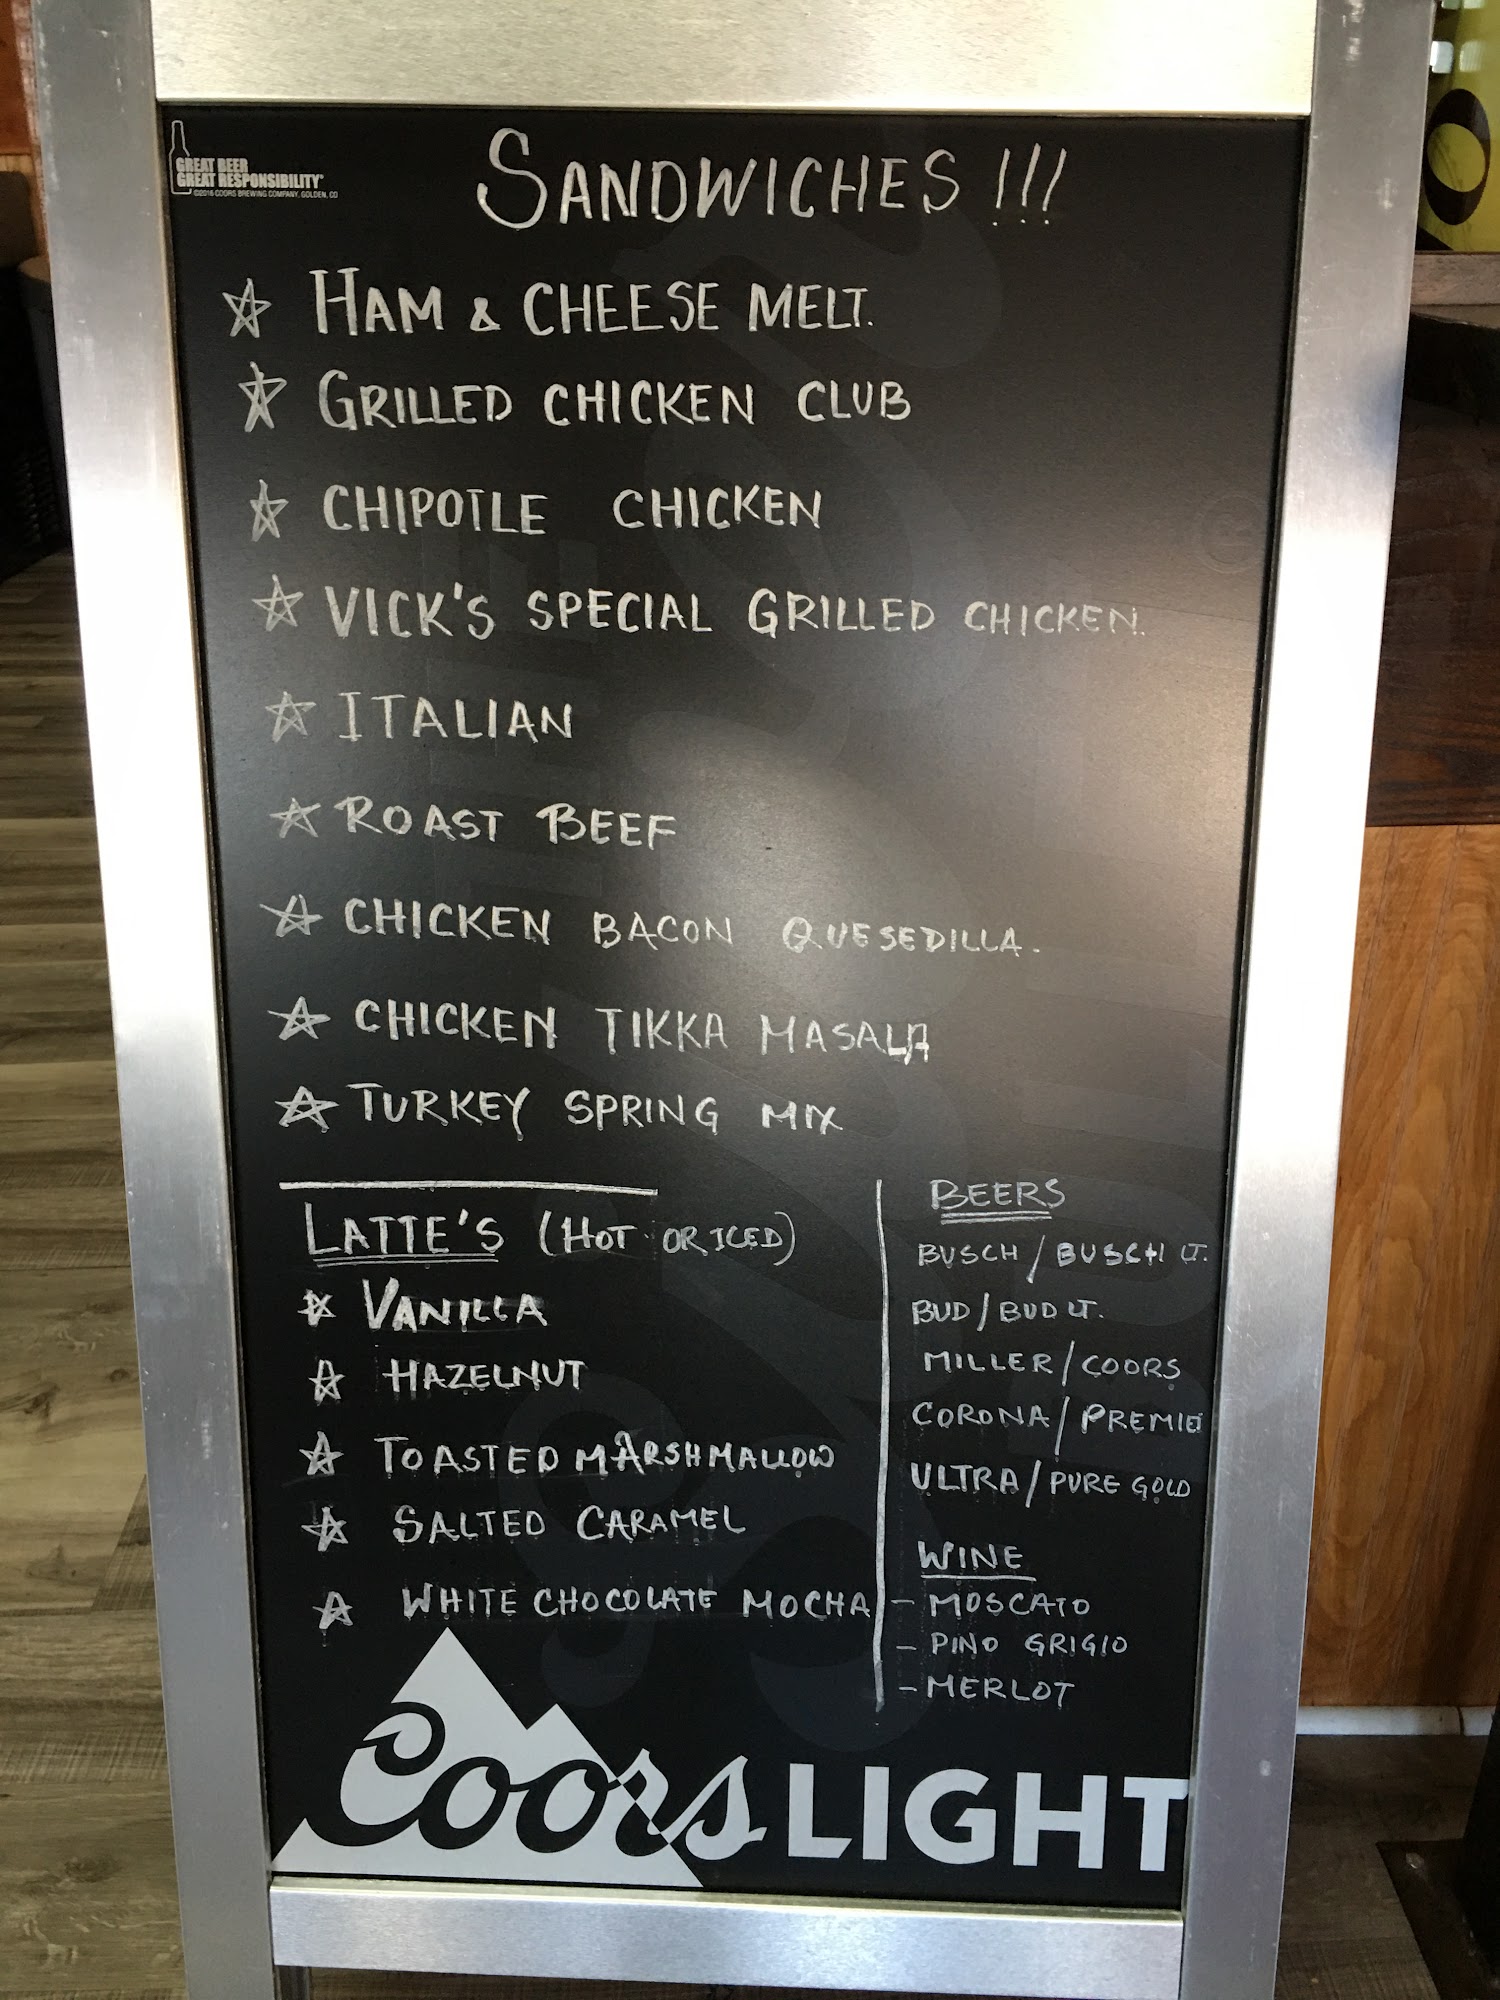 GREAT BEER
GREAT RESPONSIBILITY®
©2016 COORS BREWING COMPANY, GOLDEN, CO
SANDWICHES !!!
HAM & CHEESE MELT.
GRILLED CHICKEN CLUB
CHIPOTLE CHICKEN
VICK'S SPECIAL GRILLED CHICKEN.
ITALIAN
ROAST BEEF
CHICKEN BACON QUESEDILLA.
CHICKEN TIKKA MASALA
TURKEY SPRING MIX
LATTE'S (HOT OR ICED)
VANILLA
HAZELNUT
TOASTED MARSHMALLOW
SALTED CARAMEL
WHITE CHOCOLATE MOCHA
BEERS
BUSCH / BUSCH LT.
BUD / BUD LT.
MILLER / COORS
CORONA / PREMIE
ULTRA / PURE GOLD
WINE
- MOSCATO
- PINO GRIGIO
- MERLOT
Coors LIGHT